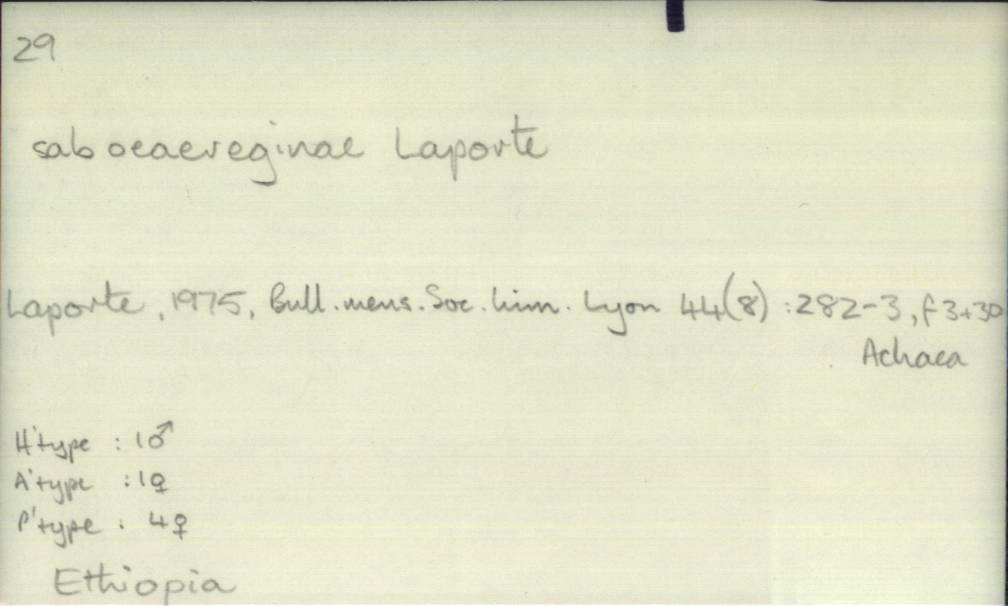 29
saboeaereginae Laporte
Laporte, 1975, Bull. mens. Soc. linn. Lyon 44(8) : 282-3, f 3+30
Achaea
H'type : 1♂
A'type : 1♀
P'type : 4♀
Ethiopia